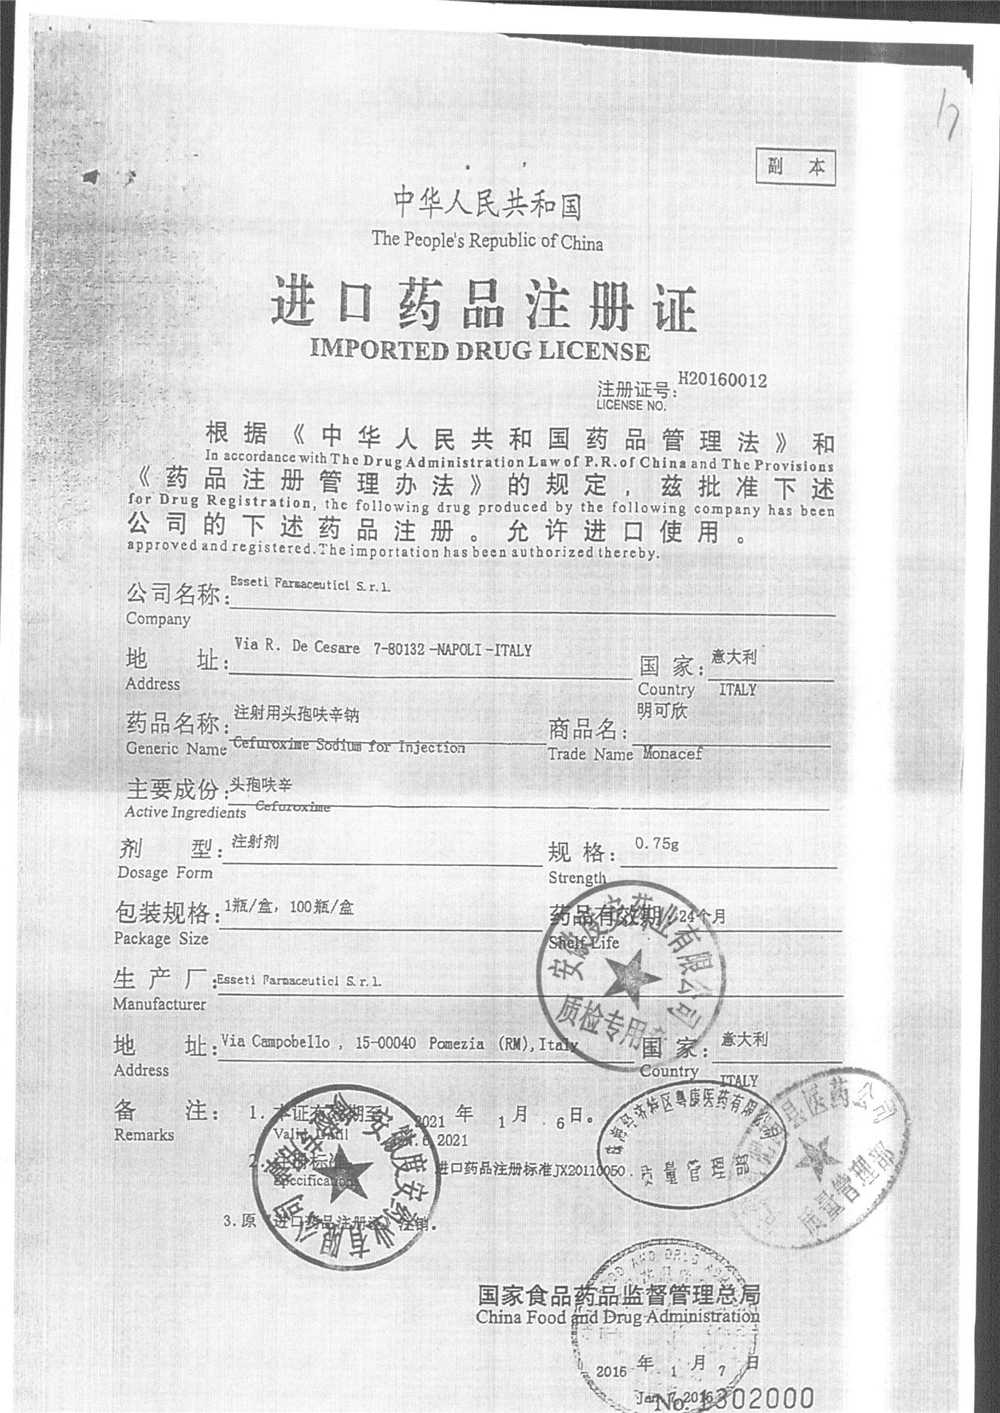 17
副 本
中华人民共和国
The People's Republic of China
进口药品注册证
IMPORTED DRUG LICENSE
注册证号: H20160012
LICENSE NO.
根据《中华人民共和国药品管理法》和
In accordance with The Drug Administration Law of P.R.of China and The Provisions
《药品注册管理办法》的规定，兹批准下述
for Drug Registration, the following drug produced by the following company has been
公司的下述药品注册。允许进口使用。
approved and registered.The importation has been authorized thereby.
公司名称: Esseti Farmaceutici S.r.l.
Company
地 址: Via R. De Cesare 7-80132-NAPOLI-ITALY 国 家: 意大利
Address Country ITALY
药品名称: 注射用头孢呋辛钠 商品名: 明可欣
Generic Name Cefuroxime Sodium for Injection Trade Name Monacef
主要成份: 头孢呋辛
Active Ingredients Cefuroxime
剂 型: 注射剂 规 格: 0.75g
Dosage Form Strength
包装规格: 1瓶/盒，100瓶/盒 药品有效期: 24个月
Package Size Shelf-Life
生 产 厂: Esseti Farmaceutici S.r.l.
Manufacturer
地 址: Via Campobello , 15-00040 Pomezia (RM),Italy 国 家: 意大利
Address Country ITALY
备 注: 1. 本证有效期至 2021 年 1 月 6 日。
Remarks Valid Until 6,2021
2. 注册标准 进口药品注册标准JX20110050.
Specifications
3.原《进口药品注册证》注销。
安徽度安药业有限公司
质检专用章
安徽度安药业有限公司
珠海经济特区粤康医药有限公司
质量管理部
县医药公司
质量管理部
国家食品药品监督管理总局
China Food and Drug Administration
2016 年 1 月 7 日
Jan 7,2016
No. 1302000